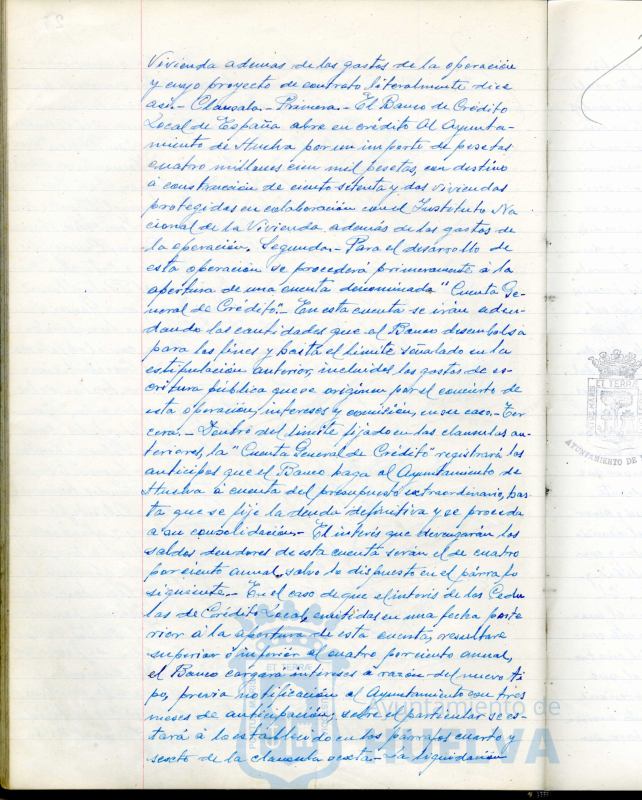 Vivienda ademas de los gastos de la operación
y cuyo proyecto de contrato literalmente dice
asi.- Clausula.- Primera.- El Banco de Crédito
Local de España abre en crédito Al Ayunta-
miento de Huelva por un importe de pesetas
cuatro millones cien mil pesetas, con destino
á construcción de ciento setenta y dos viviendas
protegidas en colaboración con el Instituto Na-
cional de la Vivienda además de los gastos de
la operación. Segunda.- Para el desarrollo de
esta operación se procederá primeramente á la
apertura de una cuenta denominada "Cuenta Ge-
neral de Crédito".- En esta cuenta se irán adeu-
dando las cantidades que el Banco desembolsa
para los fines y hasta el límite señalado en la
estipulación anterior, incluidos los gastos de es-
critura pública que se originen por el concierto de
esta operación, intereses y comisión, en su caso.- Ter
cera.- Dentro del límite fijado en las clausulas an-
teriores, la "Cuenta General de Crédito" registrará los
anticipos que el Banco haga al Ayuntamiento de
Huelva á cuenta del presupuesto extraordinario, has-
ta que se fije la deuda definitiva y se proceda
a su consolidación.- El interés que devengarán los
saldos deudores de esta cuenta serán el de cuatro
por ciento anual, salvo lo dispuesto en el párrafo
siguiente.- En el caso de que el interés de las Cedu
las de Crédito Local, emitidas en una fecha poste
rior á la apertura de esta cuenta, resultare
superior ó inferior al cuatro por ciento anual,
el Banco cargara intereses á razón del nuevo ti
po, previa notificación al Ayuntamiento con tres
meses de anticipación, sobre el particular se es-
tará á lo establecido en los párrafos cuarto y
sexto de la clausula sexta.- La liquidación
EL TERRAE
Ayuntamiento de
HUELVA
EL TERRAE
AYUNTAMIENTO DE